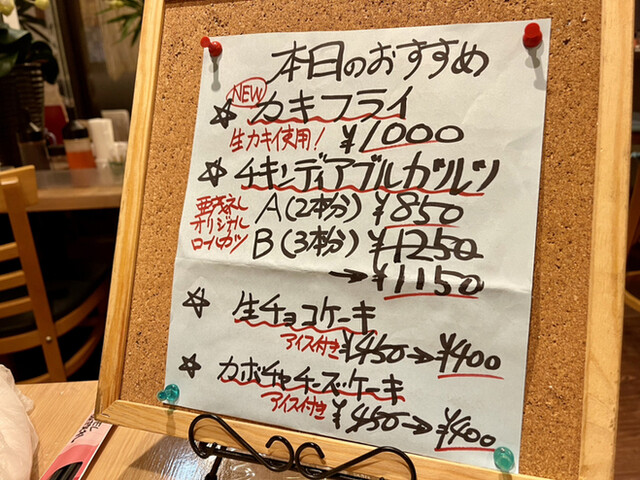 本日のおすすめ
NEW
☆ カキフライ
生カキ使用! ¥1000
☆ チキンディアブルガルツ
オリジナル
ロールカツ
A(2本分) ¥850
B(3本分) ¥1250
→¥1150
☆ 生チョコケーキ
アイス付き ¥450→¥400
☆ カボチャチーズケーキ
アイス付き ¥450→¥400